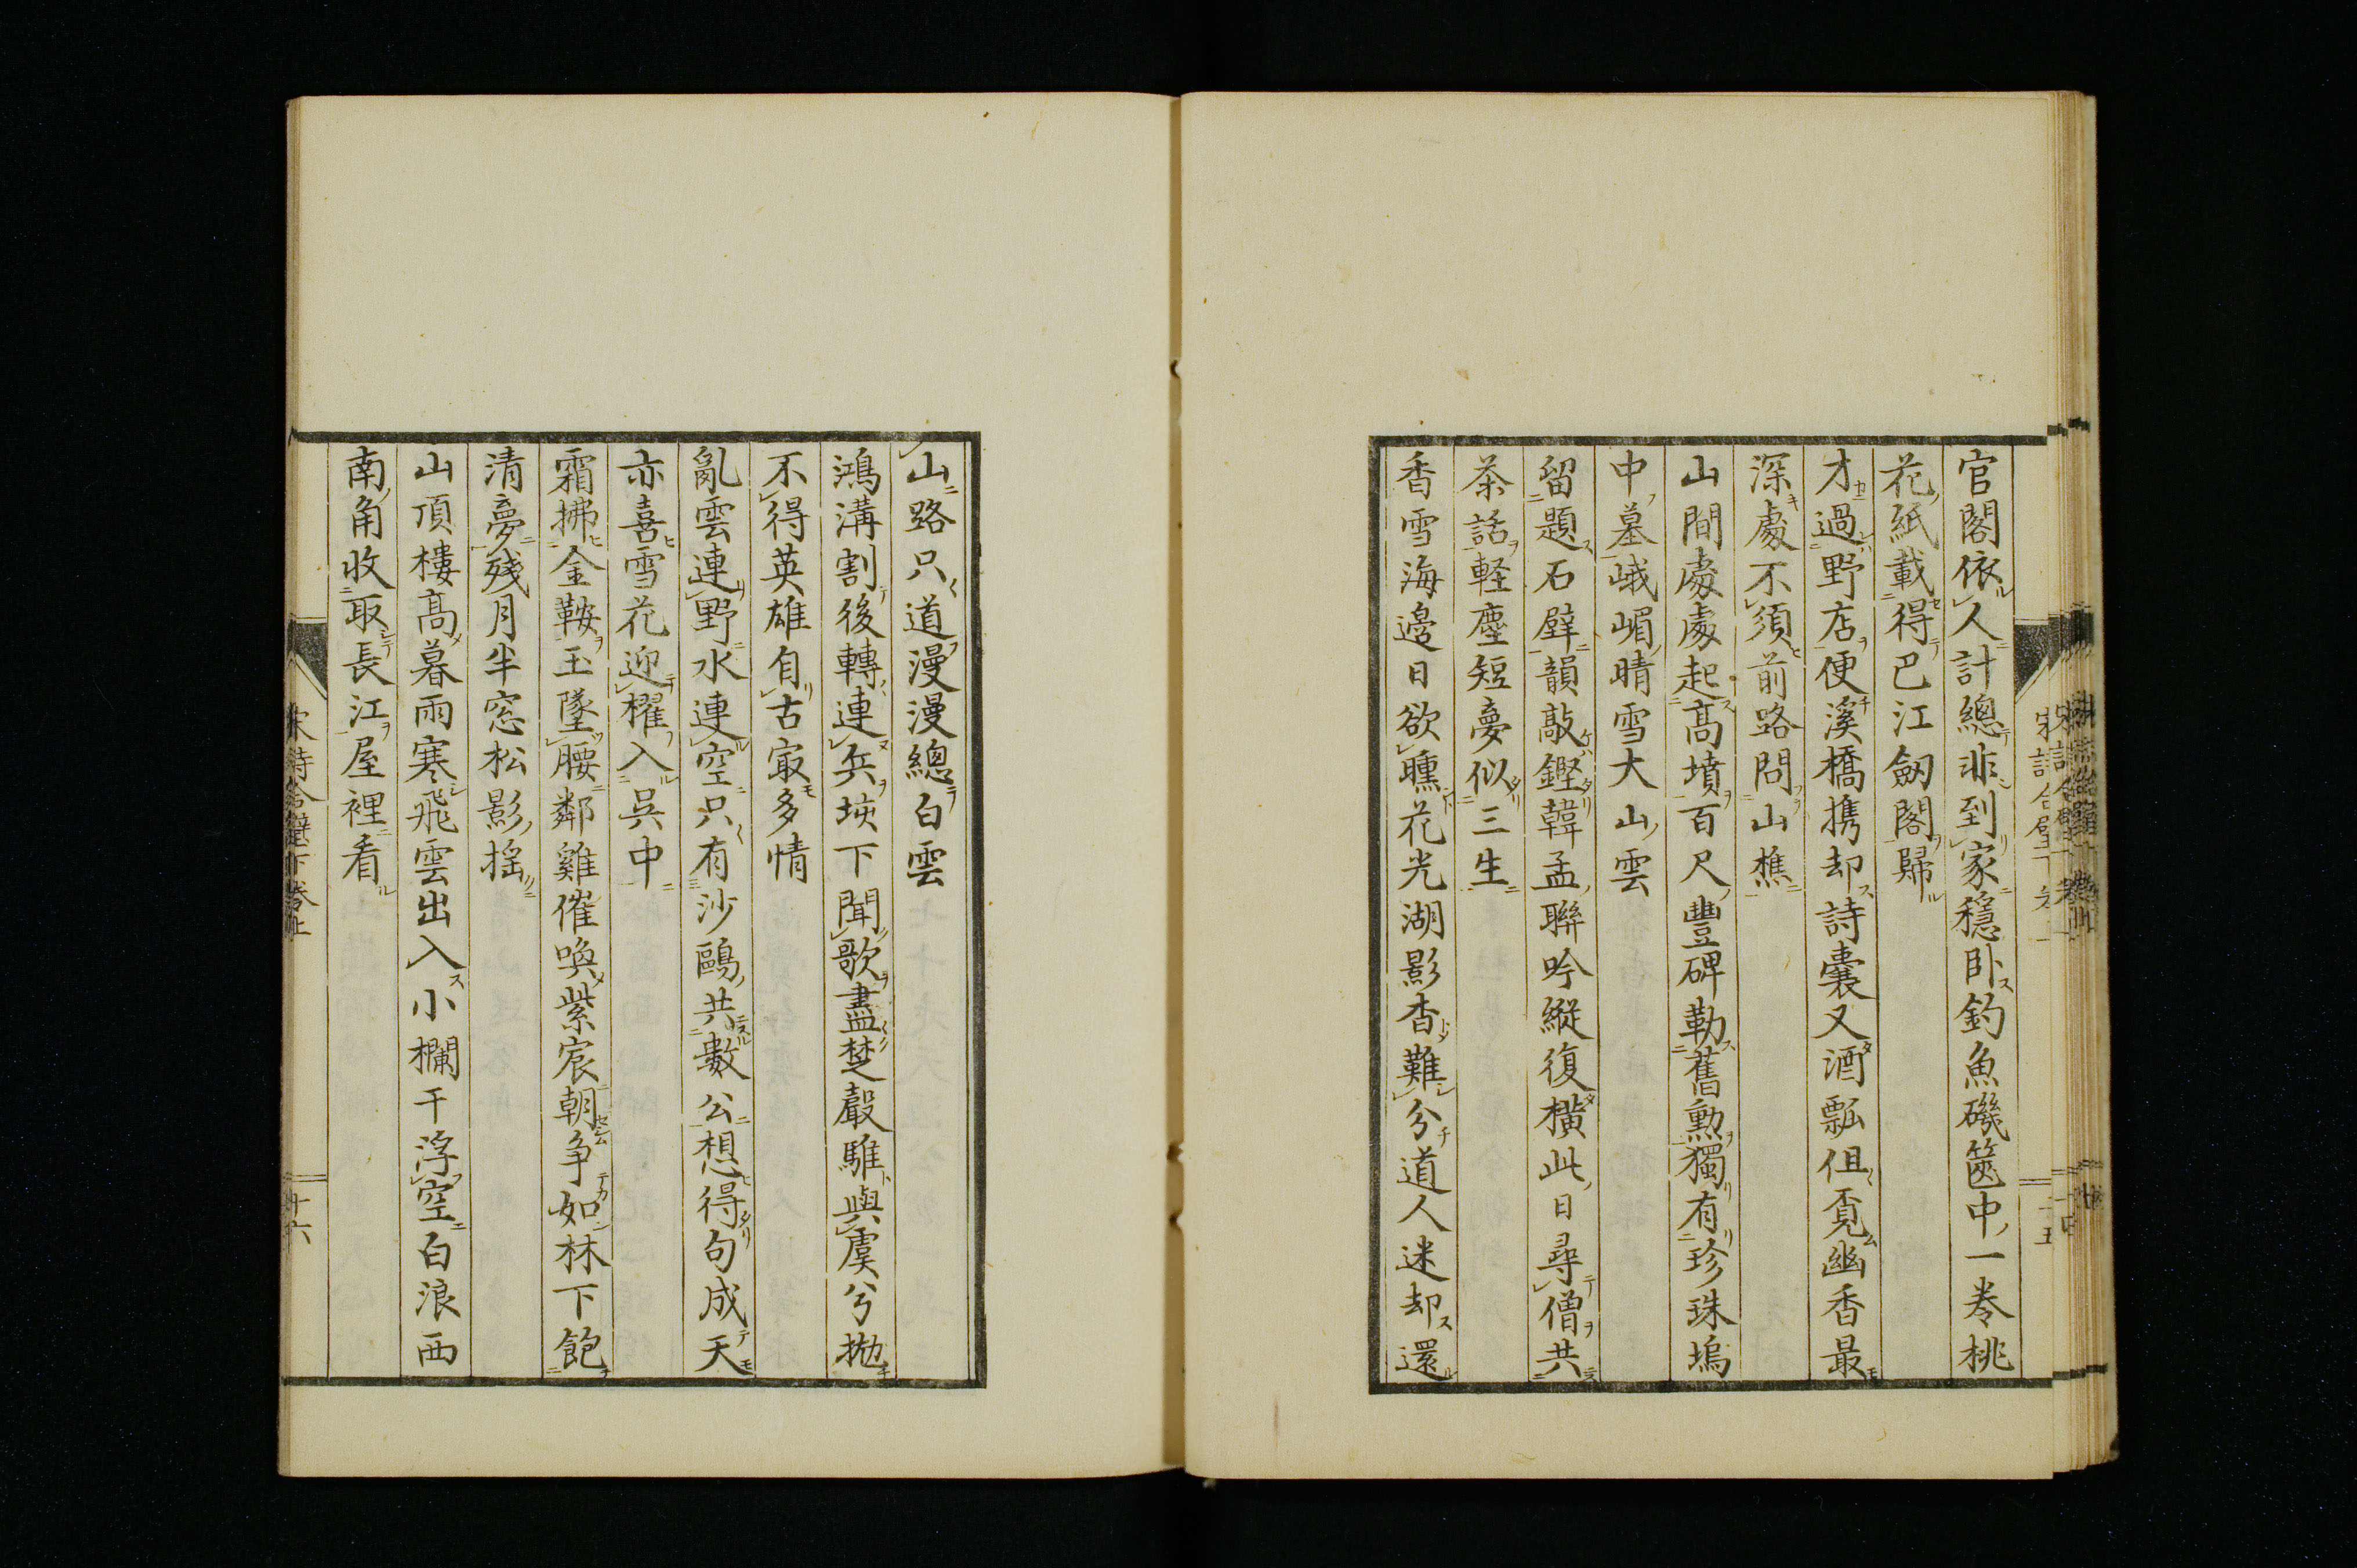 官閣依人計總非到家穩卧釣魚磯篋中一巻桃
花紙載得巴江劔閣歸
才過野店便溪橋携却詩囊又酒瓢但覔幽香最
深處不須前路問山樵
山間處處起髙墳百尺豐碑勒舊勲獨有珍珠塢
中墓峨嵋晴雪大山雲
留題石壁韻敲鏗韓孟聯吟縦復横此日尋僧共
茶話軽塵短夢似三生
香雪海邉日欲曛花光湖影杳難分道人迷却還
山路只道漫漫總白雲
鴻溝割後轉連兵垓下聞歌盡楚聲騅與虞兮拋
不得英雄自古㝡多情
亂雲連野水連空只有沙鷗共數公想得句成天
亦喜雪花迎櫂入吳中
霜拂金鞍玉墜腰鄰雞催喚紫宸朝争如林下飽
清夢殘月半窓松影搖
山頂樓髙暮雨寒飛雲出入小欄干浮空白浪西
南角收取長江屋裡看
宋詩合璧下巻上
十六